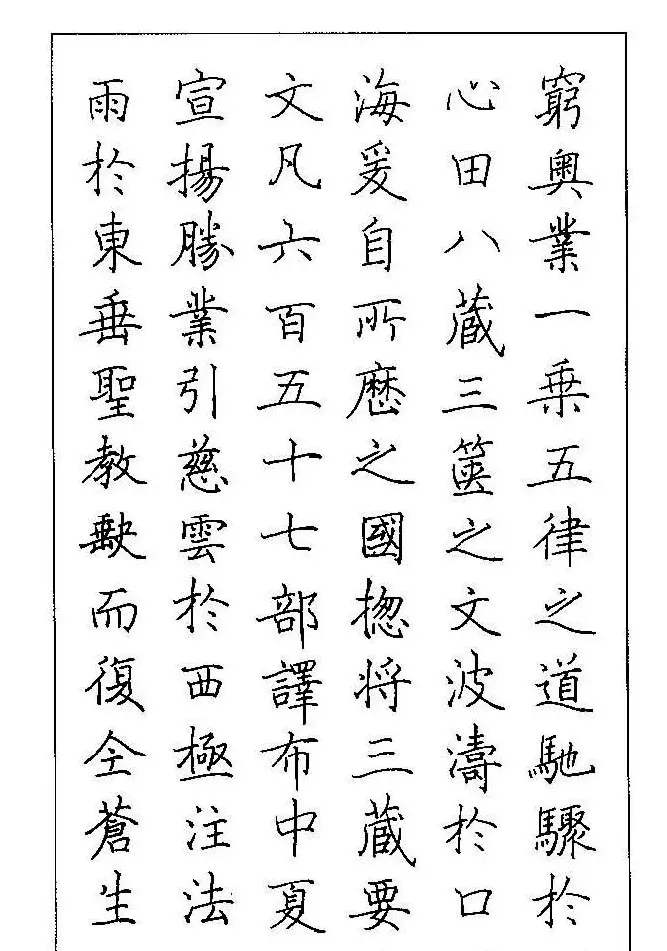 窮奥業一乗五律之道馳驟於
心田八蔵三篋之文波濤於口
海爰自所歷之國揔将三蔵要
文凡六百五十七部譯布中夏
宣揚勝業引慈雲於西極注法
雨於東垂聖教缺而復全蒼生